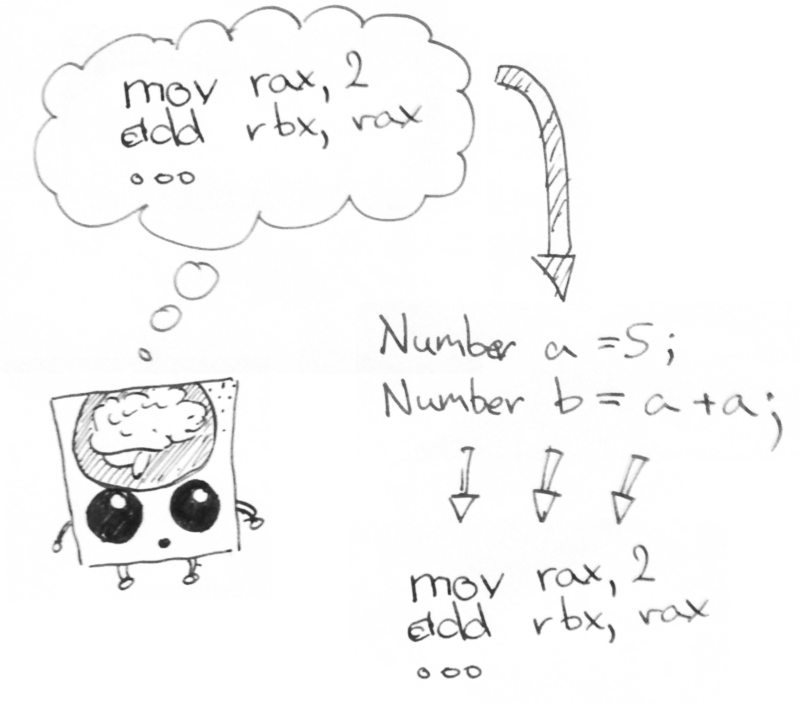 mov rax, 2
add rbx, rax
ooo
Number a = 5;
Number b = a + a;
mov rax, 2
add rbx, rax
ooo